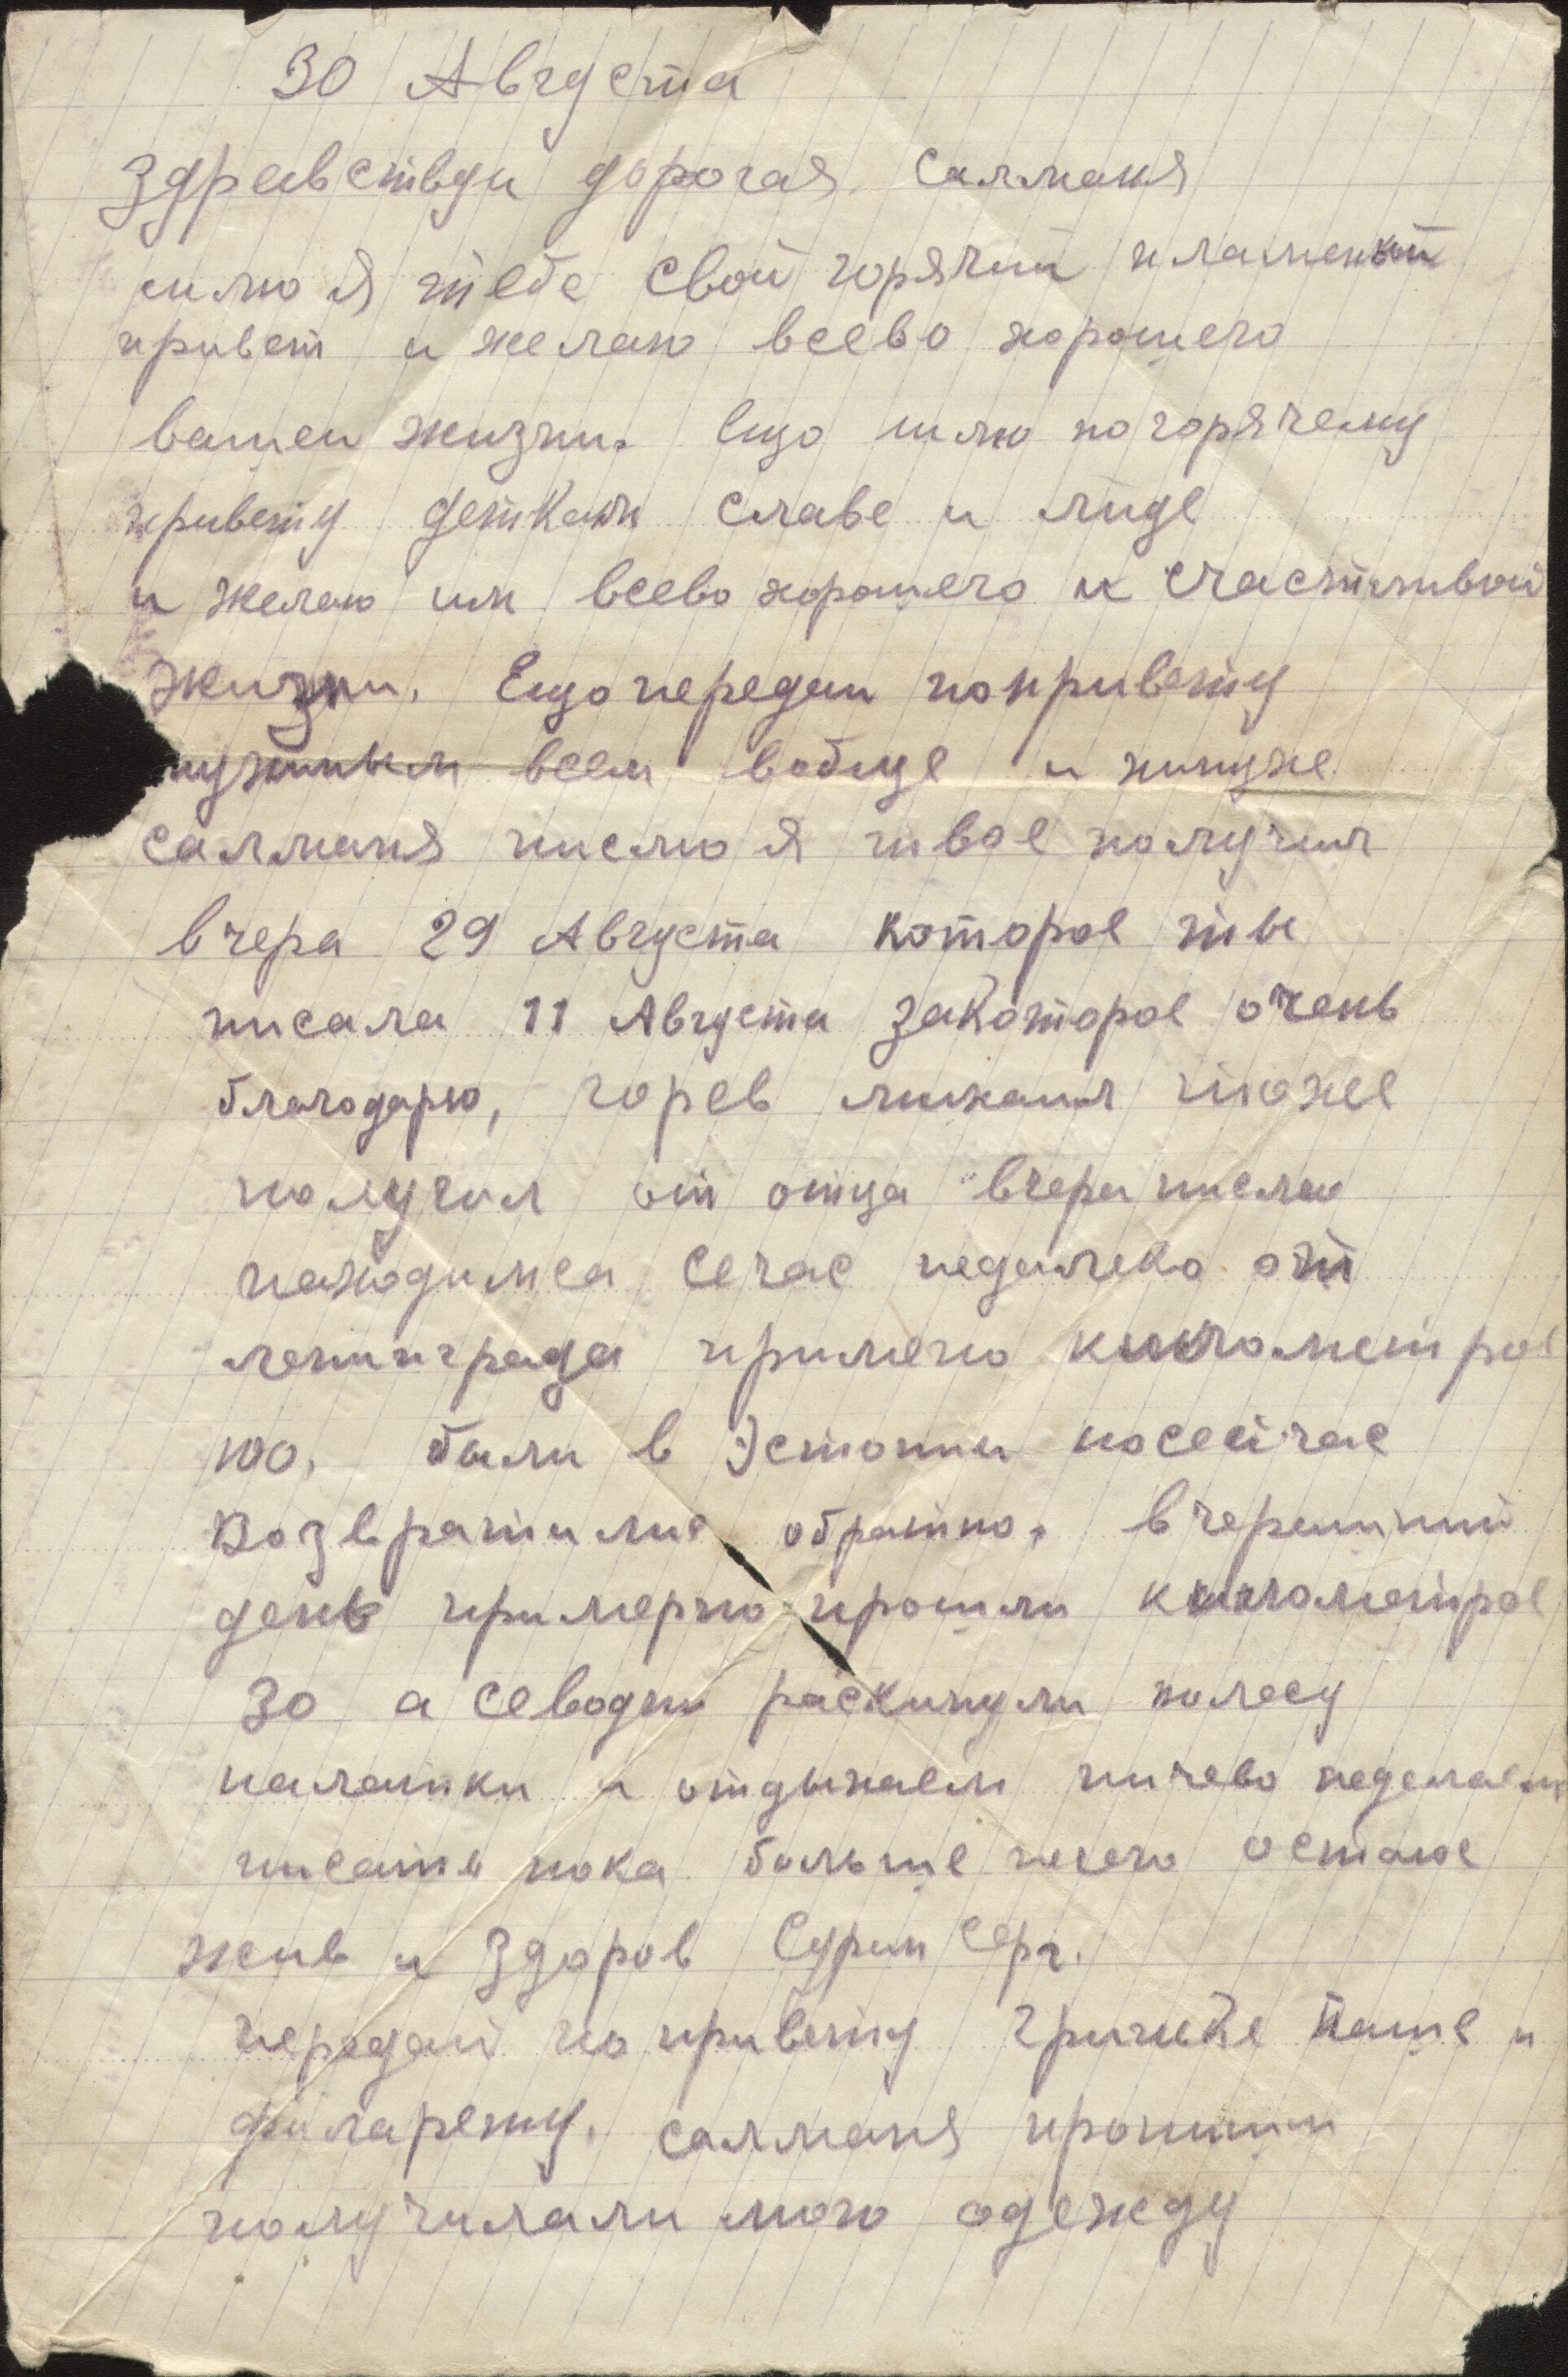 30 Августа
Здравствуи дорогая Салманя
шлю я тебе свой горячий пламеный
привет и желаю всево хорошего
вашеи жизни. Ещо шлю погорячему
привету деткам славе и лиде
и желаю им всево хорошего и счастливой
жизни. Ещо передаи попривету
всем вобще и
салманя писмо я твое получил
вчера 29 Августа которое ты
писала 11 Августа закоторое очень
благодарю, горев михаил тоже
получил от отца вчера писмо
находимса сечас недалеко от
ленинграда примено километров
100. были в Эстонии носейчас
возвратилис обратно. вчерашний
день примерно прошли километров
30 а севодни раскинули полесу
палатки и отдыхаем ничево неделаем
писать пока больше нечего остаюс
жив и здоров Сурин Серг.
передай по привету гришке паше и
филарету. салманя пропиши
получилали мою одежду